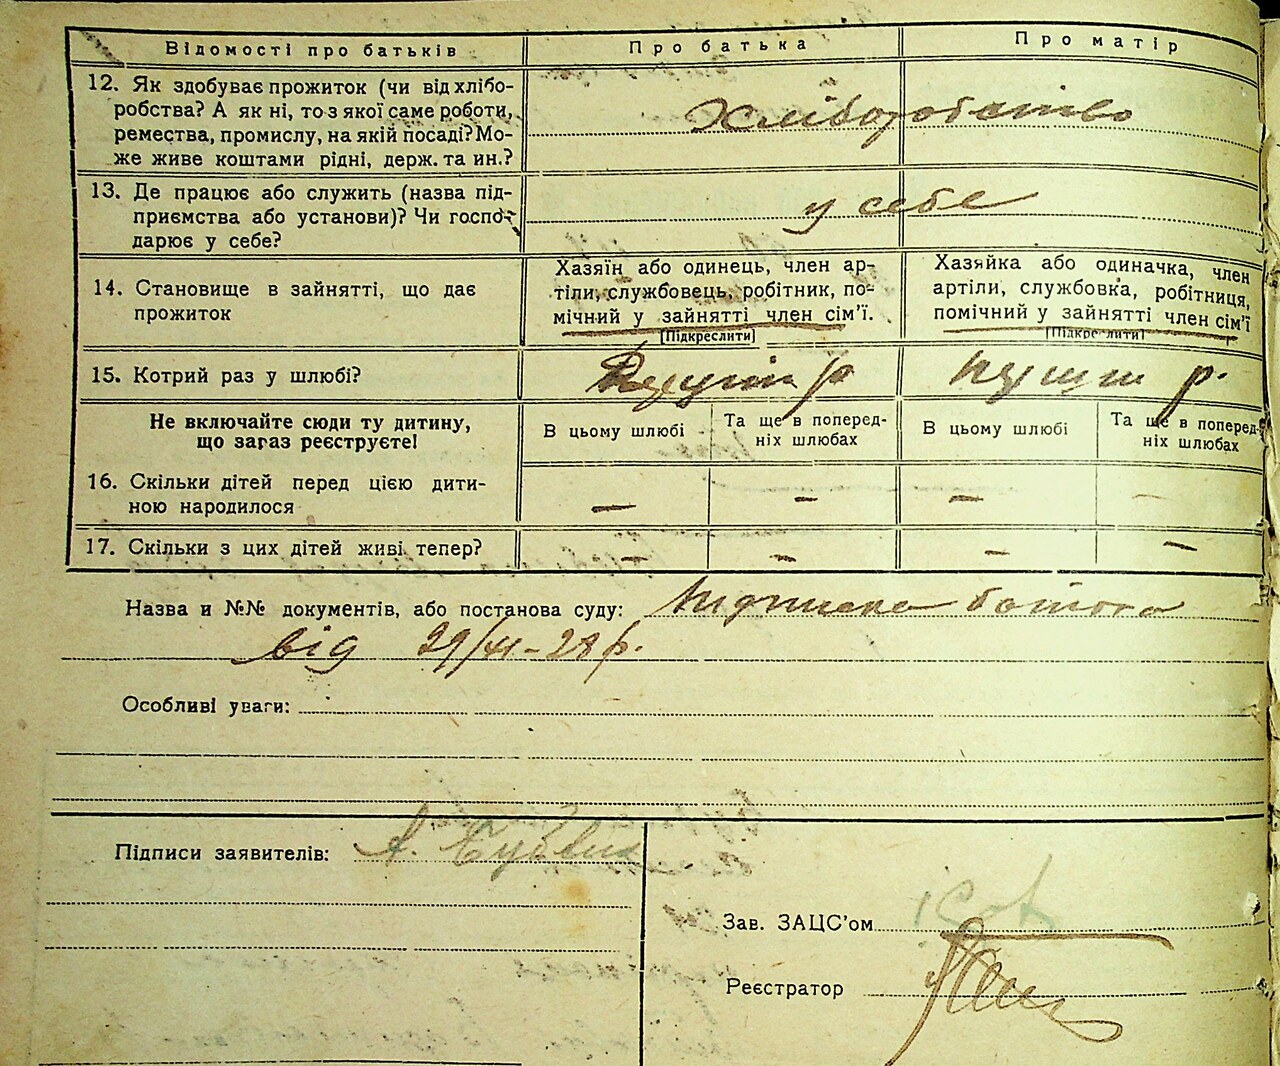 Відомості про батьків Про батька Про матір
12. Як здобуває прожиток (чи від хлібо-
робства? А як ні, то з якої саме роботи,
ремества, промислу, на якій посаді? Мо-
же живе коштами рідні, держ. та ин.?
Хліборобство
13. Де працює або служить (назва під-
приємства або установи)? Чи госпо-
дарює у себе?
у себе
14. Становище в зайнятті, що дає
прожиток
Хазяїн або одинець, член ар-
тіли, службовець, робітник, по-
мічний у зайнятті член сім'ї.
[Підкреслити]
Хазяйка або одиначка, член
артіли, службовка, робітниця,
помічний у зайнятті член сім'ї
[Підкреслити]
15. Котрий раз у шлюбі? р р.
Не включайте сюди ту дитину,
що зараз реєструєте!
В цьому шлюбі
Та ще в поперед-
ніх шлюбах
В цьому шлюбі
Та ще в поперед-
ніх шлюбах
16. Скільки дітей перед цією дити-
ною народилося
— — — —
17. Скільки з цих дітей живі тепер? — — — —
Назва и №№ документів, або постанова суду:
від 29/XI-28 р.
Особливі уваги:
Підписи заявителів: А.
Зав. ЗАЦС'ом
Реєстратор